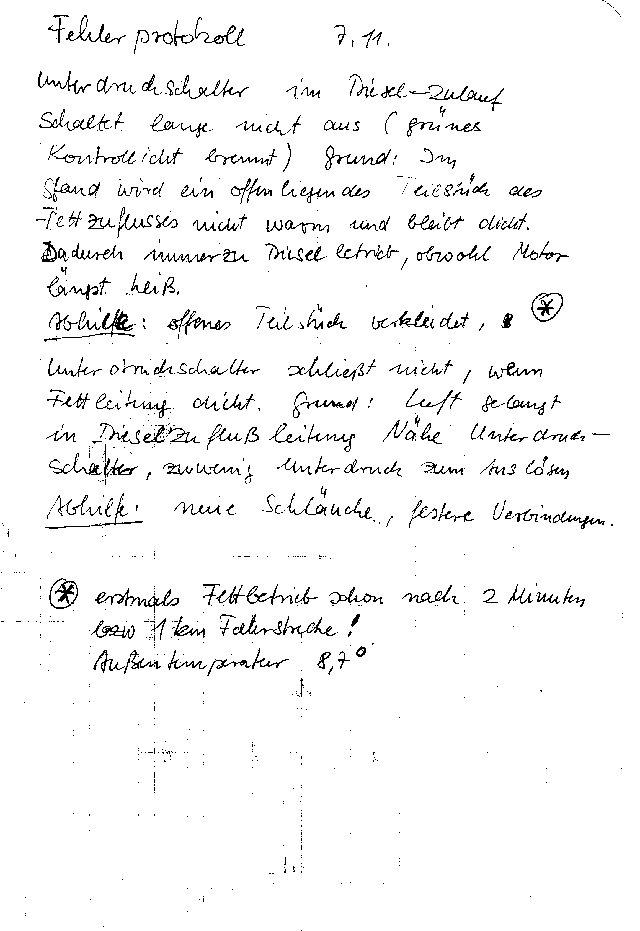 Fehlerprotokoll 7.11.
Unterdruckschalter im Diesel-Zulauf
schaltet lange nicht aus (grünes
Kontrollicht brennt) Grund: Im
Stand wird ein offenliegendes Teilstück des
Fettzuflusses nicht warm und bleibt dicht.
Dadurch immerzu Dieselbetrieb, obwohl Motor
längst heiß.
Abhilfe: offenes Teilstück verkleidet, *
Unterdruckschalter schließt nicht, wenn
Fettleitung dicht. Grund: Luft gelangt
in Dieselzuflußleitung Nähe Unterdruck-
schalter, zuwenig Unterdruck zum Auslösen
Abhilfe: neue Schläuche, festere Verbindungen.
* erstmals Fettbetrieb schon nach 2 Minuten
bzw 1 km Fahrstrecke!
Außentemperatur 8,7°